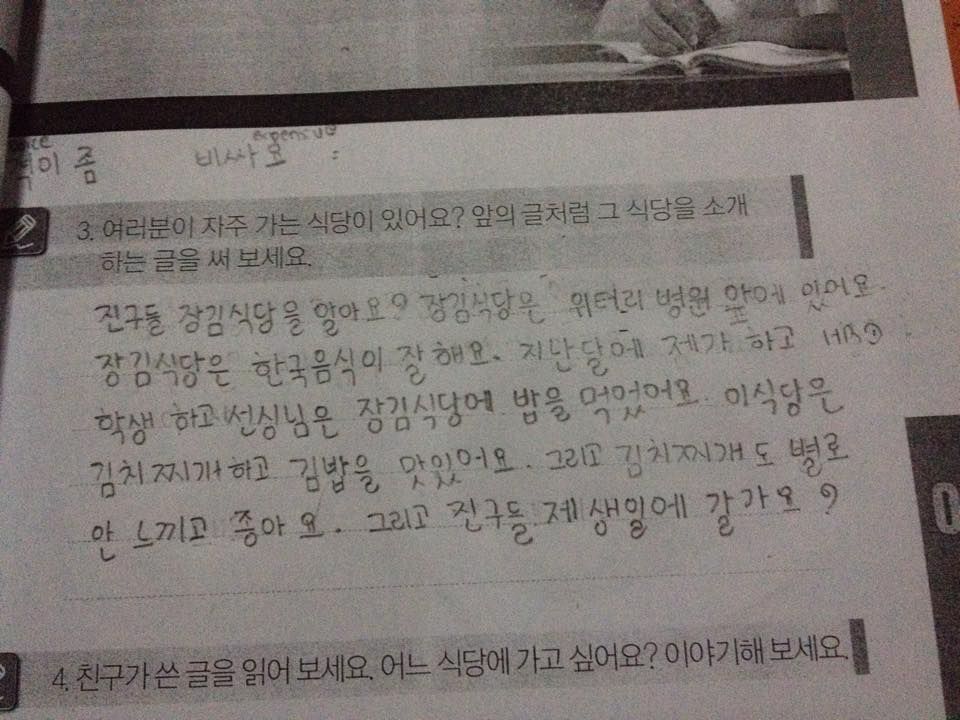 이 좀 비싸요
3. 여러분이 자주 가는 식당이 있어요? 앞의 글처럼 그 식당을 소개
하는 글을 써 보세요.
진구들 장김식당을 알아요? 장김식당은 위터리 병원 앞에 있어요.
장김식당은 한국음식이 잘해요. 지난달에 제가 하고 HBO
학생 하고 선싱님은 장김식당에 밥을 먹었어요. 이식당은
김치찌개하고 김밥을 맛있어요. 그리고 김치찌개도 별로
안 느끼고 좋아요. 그리고 진구들 제 생일에 갈가요?
4. 친구가 쓴 글을 읽어 보세요. 어느 식당에 가고 싶어요? 이야기해 보세요.